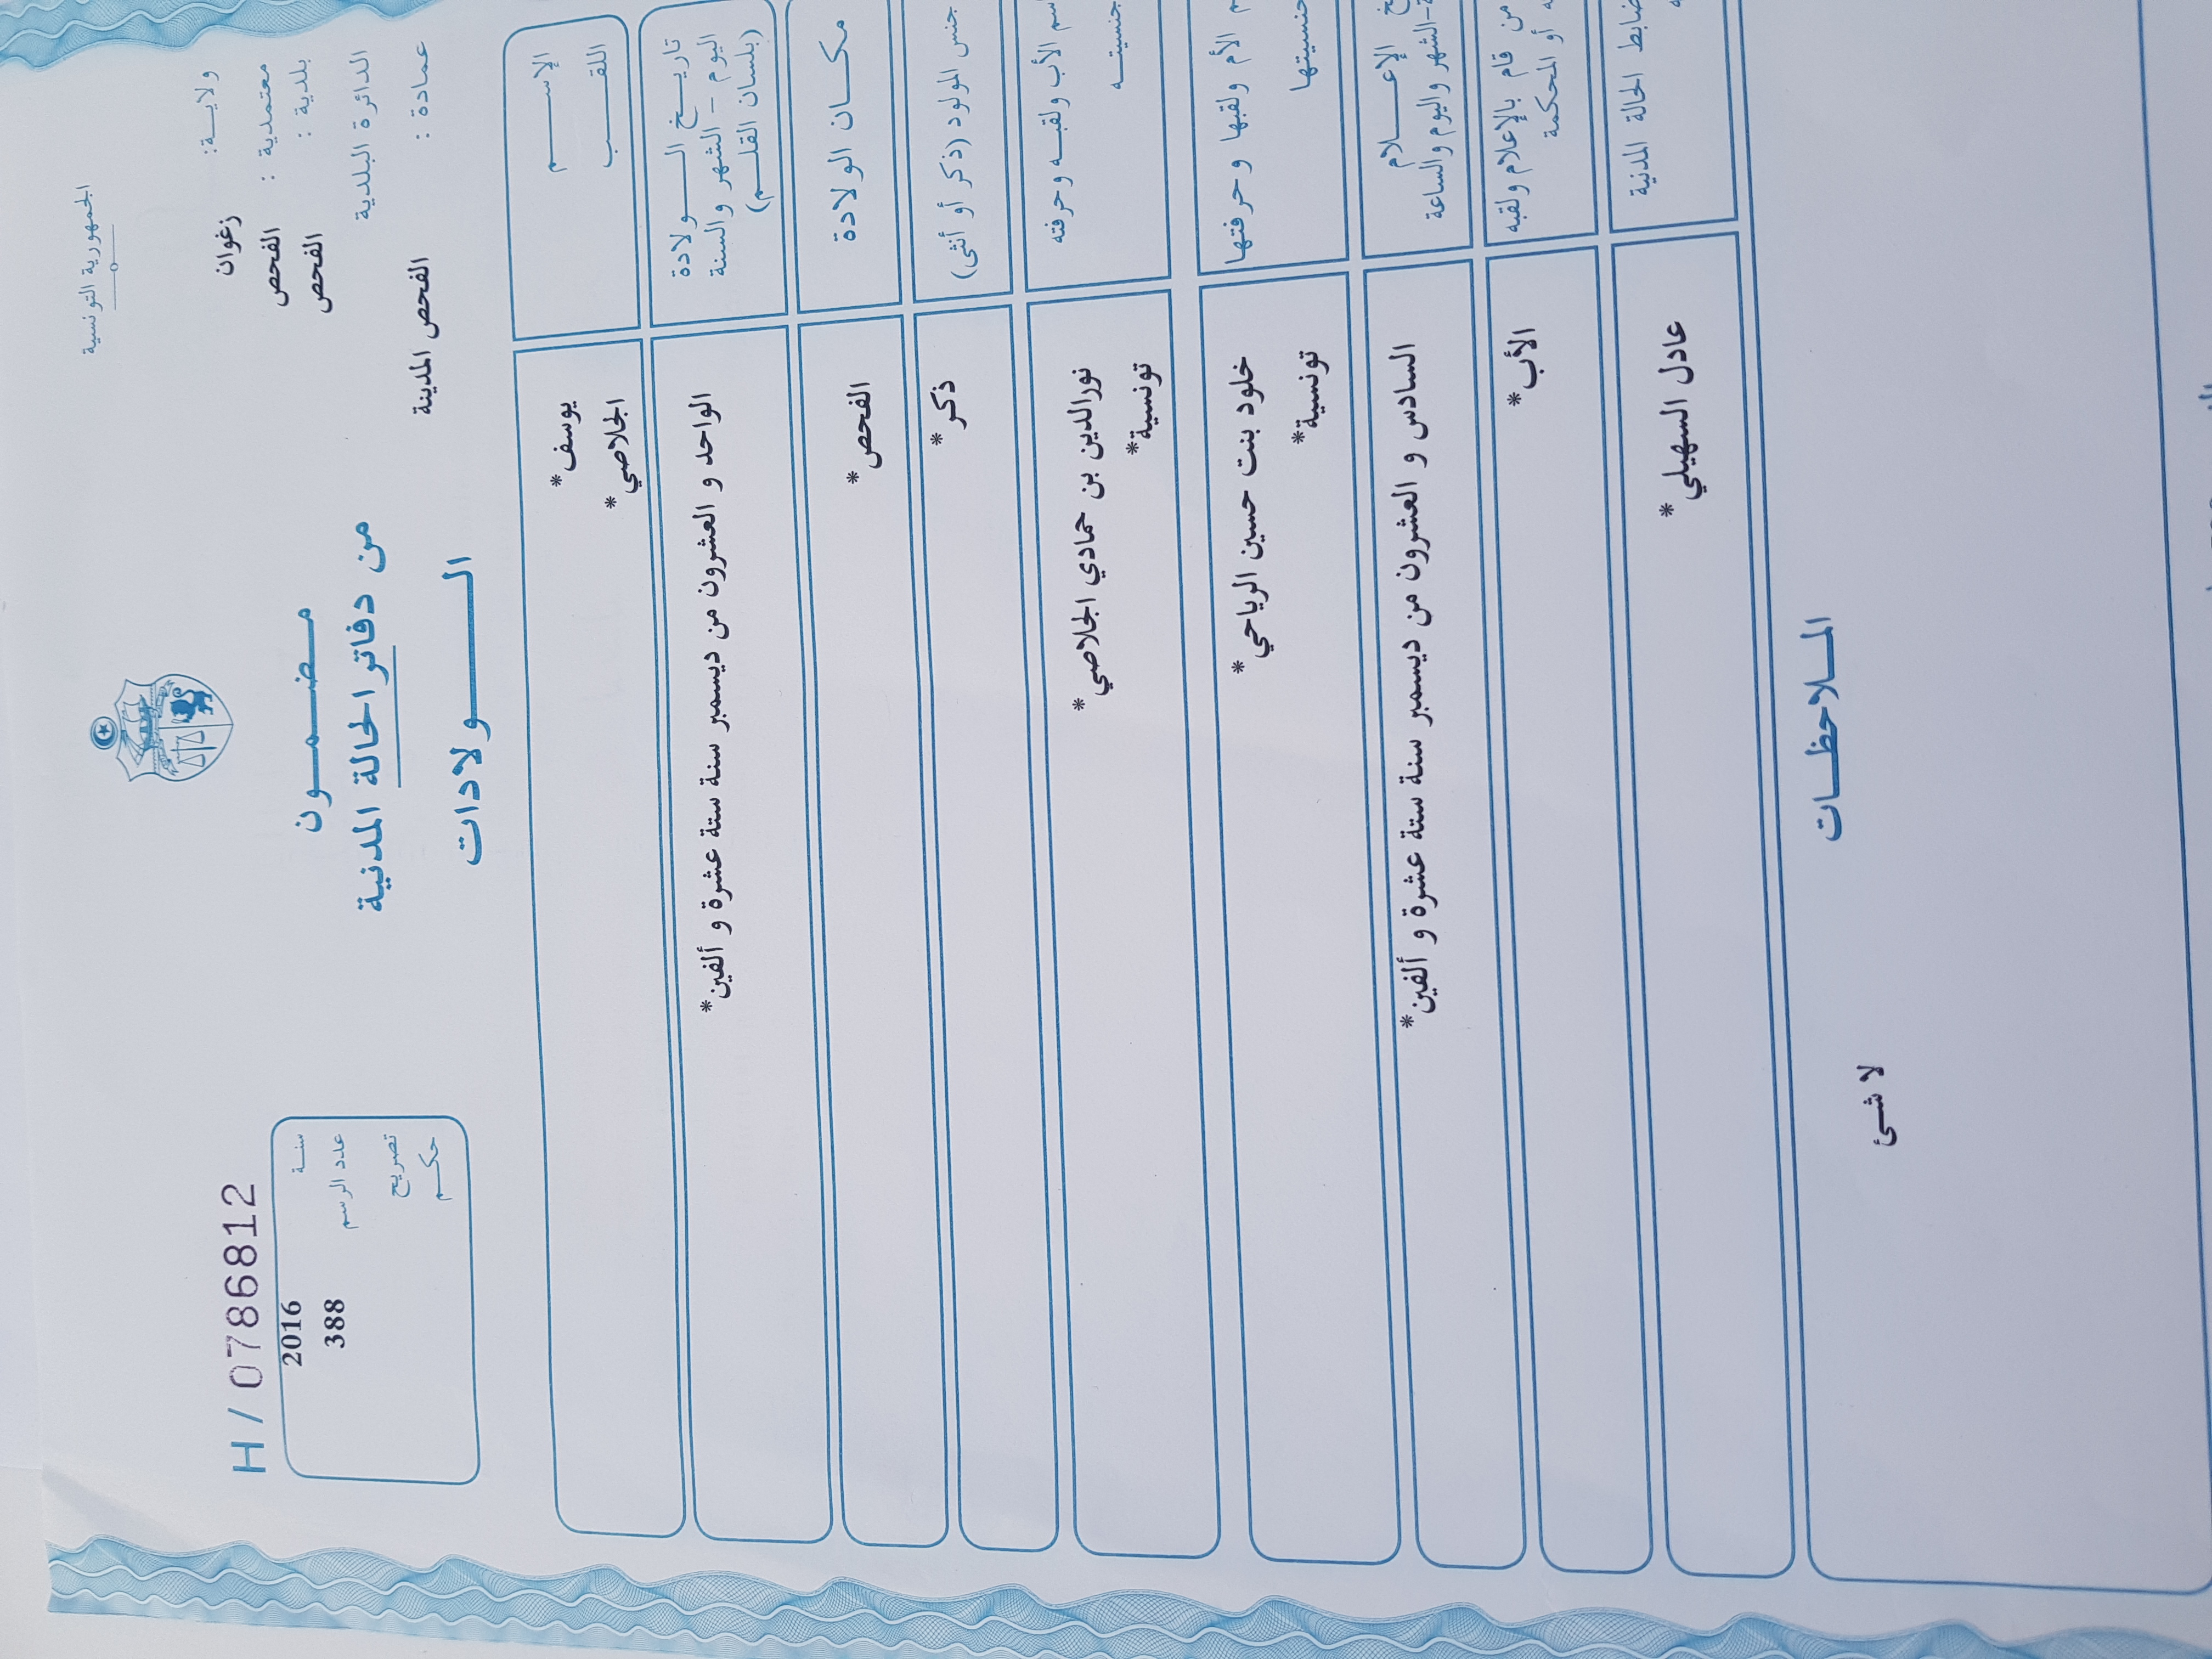 الجمهورية التونسية
ولاية: زغوان
معتمدية : الفحص
بلدية : الفحص
الدائرة البلدية
عمادة : الفحص المدينة
مضمون
من دفاتر الحالة المدنية
الولادات
H / 0786812
سنة 2016
عدد الرسم 388
تصريح
حكم
الإسم يوسف*
اللقب الجلاصي*
تاريخ الولادة
اليوم - الشهر والسنة
(بلسان القلم)
الواحد و العشرون من ديسمبر سنة ستة عشرة و ألفين*
مكان الولادة الفحص*
جنس المولود (ذكر أو أنثى) ذكر*
اسم الأب ولقبه وحرفته نورالدين بن حمادي الجلاصي*
جنسيته تونسية*
الأم ولقبها وحرفتها خلود بنت حسين الرياحي*
جنسيتها تونسية*
الإعلام
الشهر واليوم والساعة
السادس و العشرون من ديسمبر سنة ستة عشرة و ألفين*
من قام بالإعلام ولقبه
أو المحكمة
الأب*
ضابط الحالة المدنية عادل السهيلي*
الملاحظات
لا شئ